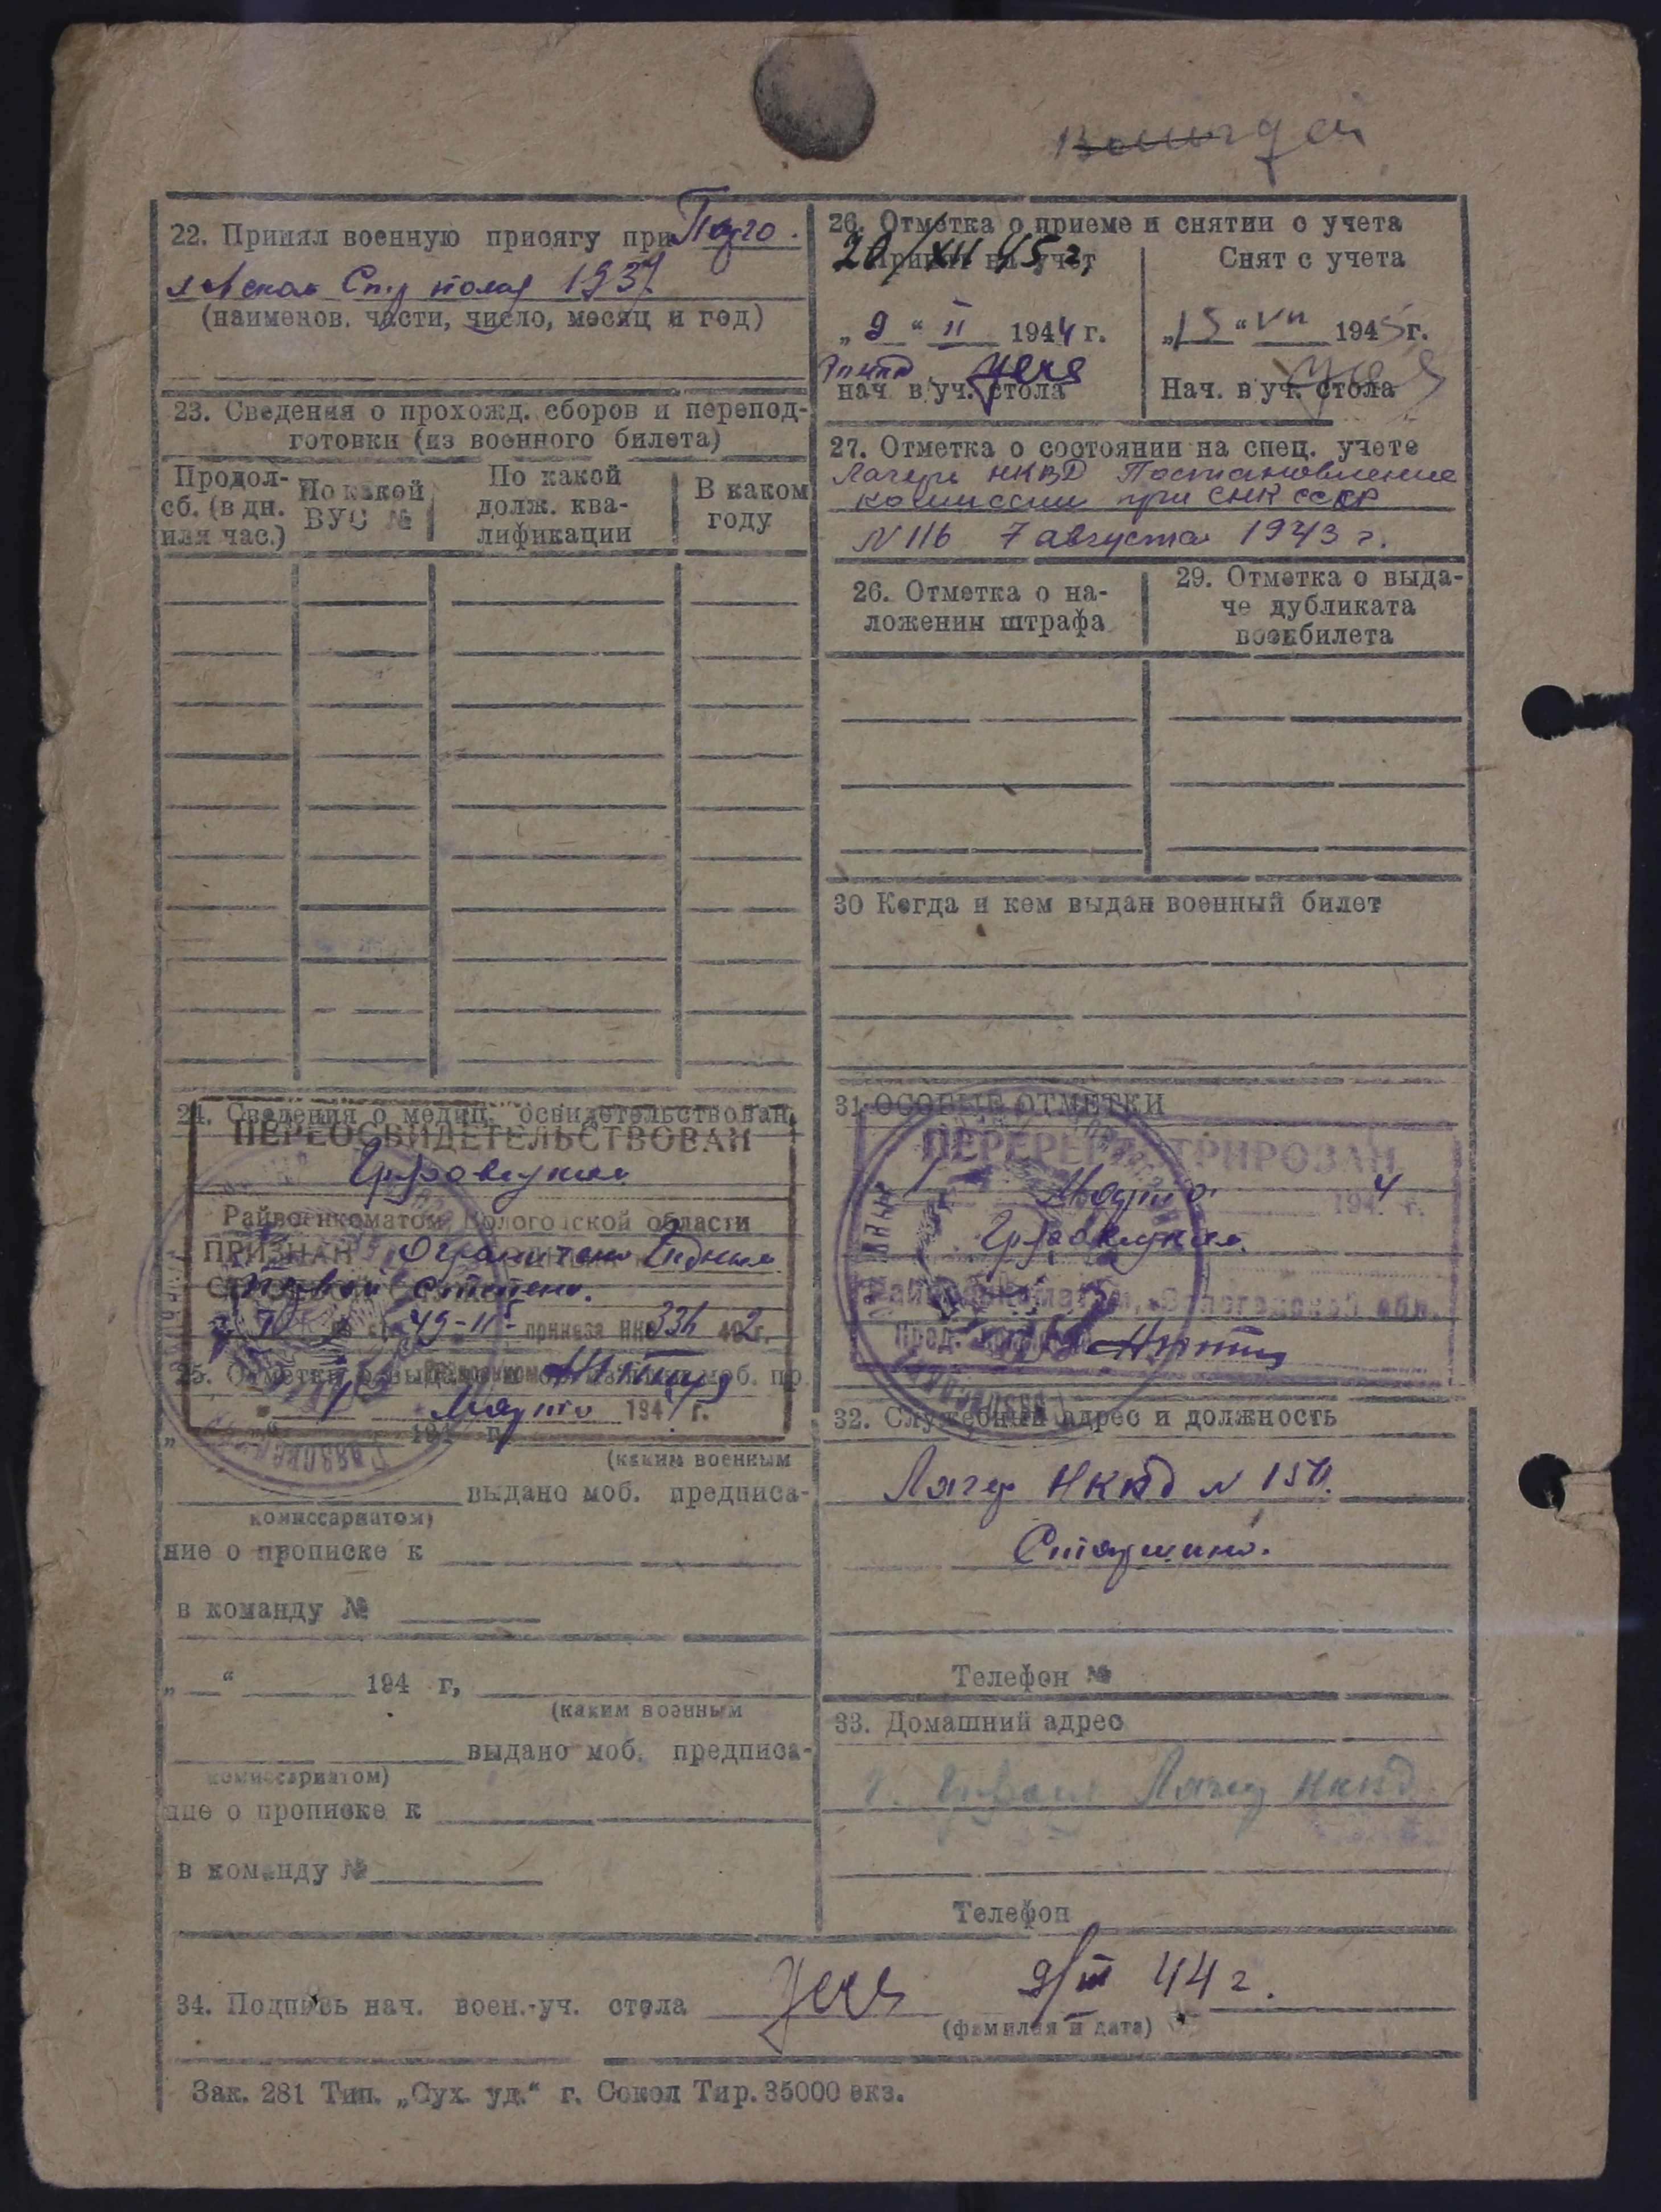 22. Принял военную присягу при
1937
(наименов. части, число, месяц и год)
23. Сведения о прохожд. сборов и перепод-
готовки (из военного билета)
Продол-
сб. (в дн.
или час.)
По какой
ВУС №
По какой
долж. ква-
лификации
В каком
году
24. Сведения о медиц. освидетельствован.
ПЕРЕОСВИДЕТЕЛЬСТВОВАН
Грязовецким
Райвоенкоматом Вологодской области
ПРИЗНАН Ограниченно Годным
первой степени.
приказа НКО 336 42 г.
25.
Марта 1944 г.
194 г.
(каким военным
выдано моб. предписа-
комиссариатом)
ние о прописке к
в команду №
„ “ 194 г,
(каким военным
выдано моб. предписа-
комиссариатом)
ние о прописке к
в команду №
26. Отметка о приеме и снятии с учета
20/XII 45 г.
Принят на учет
„9“ II 1944 г.
нач. в/уч. стола
Снят с учета
„15“ VII 1945 г.
Нач. в уч. стола
27. Отметка о состоянии на спец. учете
Лагерь НКВД Постановление
комиссии при СНК СССР
N 116 7 августа 1943 г.
26. Отметка о на-
ложении штрафа
29. Отметка о выда-
че дубликата
воекбилета
30 Когда и кем выдан военный билет
31 ОСОБЫЕ ОТМЕТКИ
ПЕРЕРЕГИСТРИРОВАН
Марта 1944 г.
Грязовецким
Райвоенкоматом, Вологодской обл.
32. Служебный адрес и должность
Лагер НКВД N 150.
Старшина.
Телефон №
33. Домашний адрес
Лагер НКВД
Телефон
34. Подпись нач. воен.-уч. стола 9/III 44 г.
(фамилия и дата)
Зак. 281 Тип. „Сух. уд.“ г. Сокол Тир. 35000 экз.